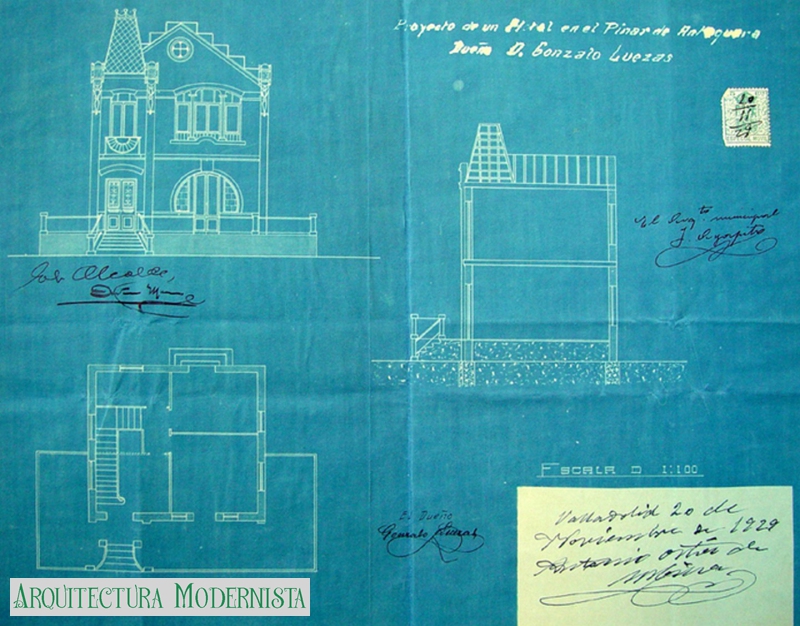 Proyecto de un Hotel en el Pinar de Antequera
Dueño D. Gonzalo Luezas
20
11
29
El Arqto municipal
J. Agapito
Alcalde,
El Dueño
Gonzalo Luezas
ESCALA D 1:100
Valladolid 20 de
Noviembre de 1929
Antonio Ortiz de
ARQUITECTURA MODERNISTA